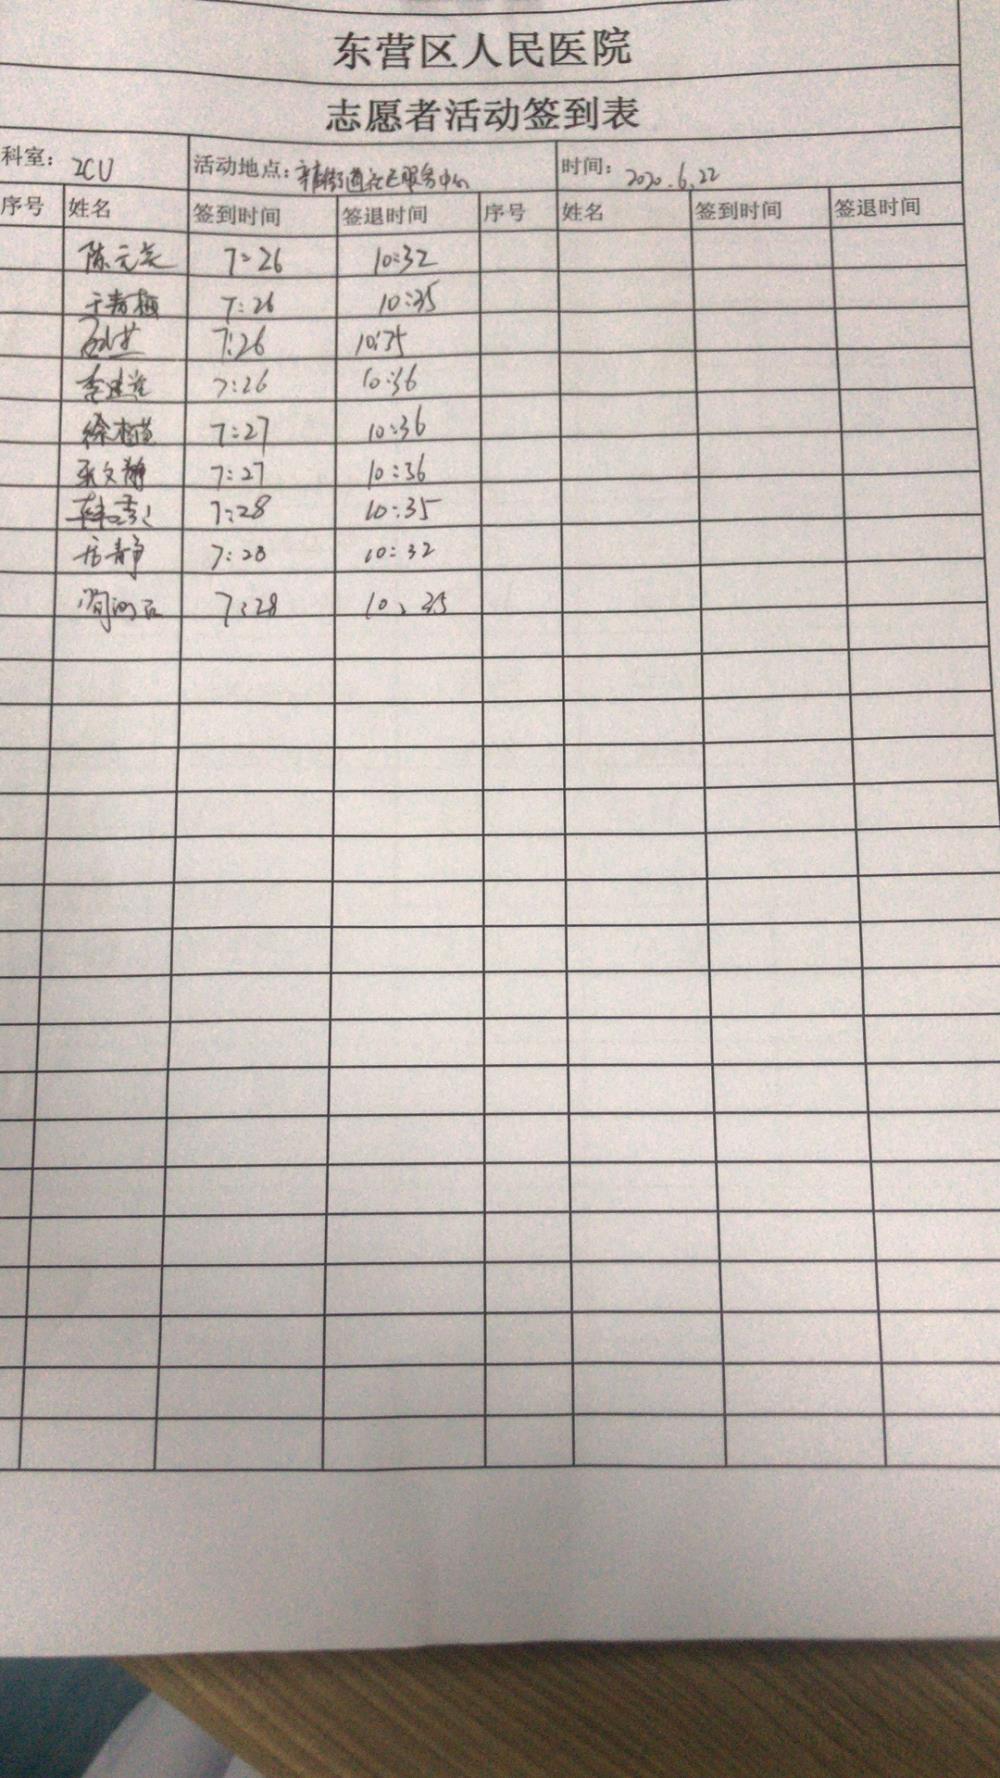 东营区人民医院
志愿者活动签到表
科室: ICU 活动地点: 街道社区服务中心 时间: 2020.6.22
序号 姓名 签到时间 签退时间 序号 姓名 签到时间 签退时间
陈元英 7:26 10:32
于青梅 7:26 10:35
7:26 10:35
7:26 10:36
徐 7:27 10:36
张文静 7:27 10:36
7:28 10:35
静 7:28 10:32
7:28 10:35